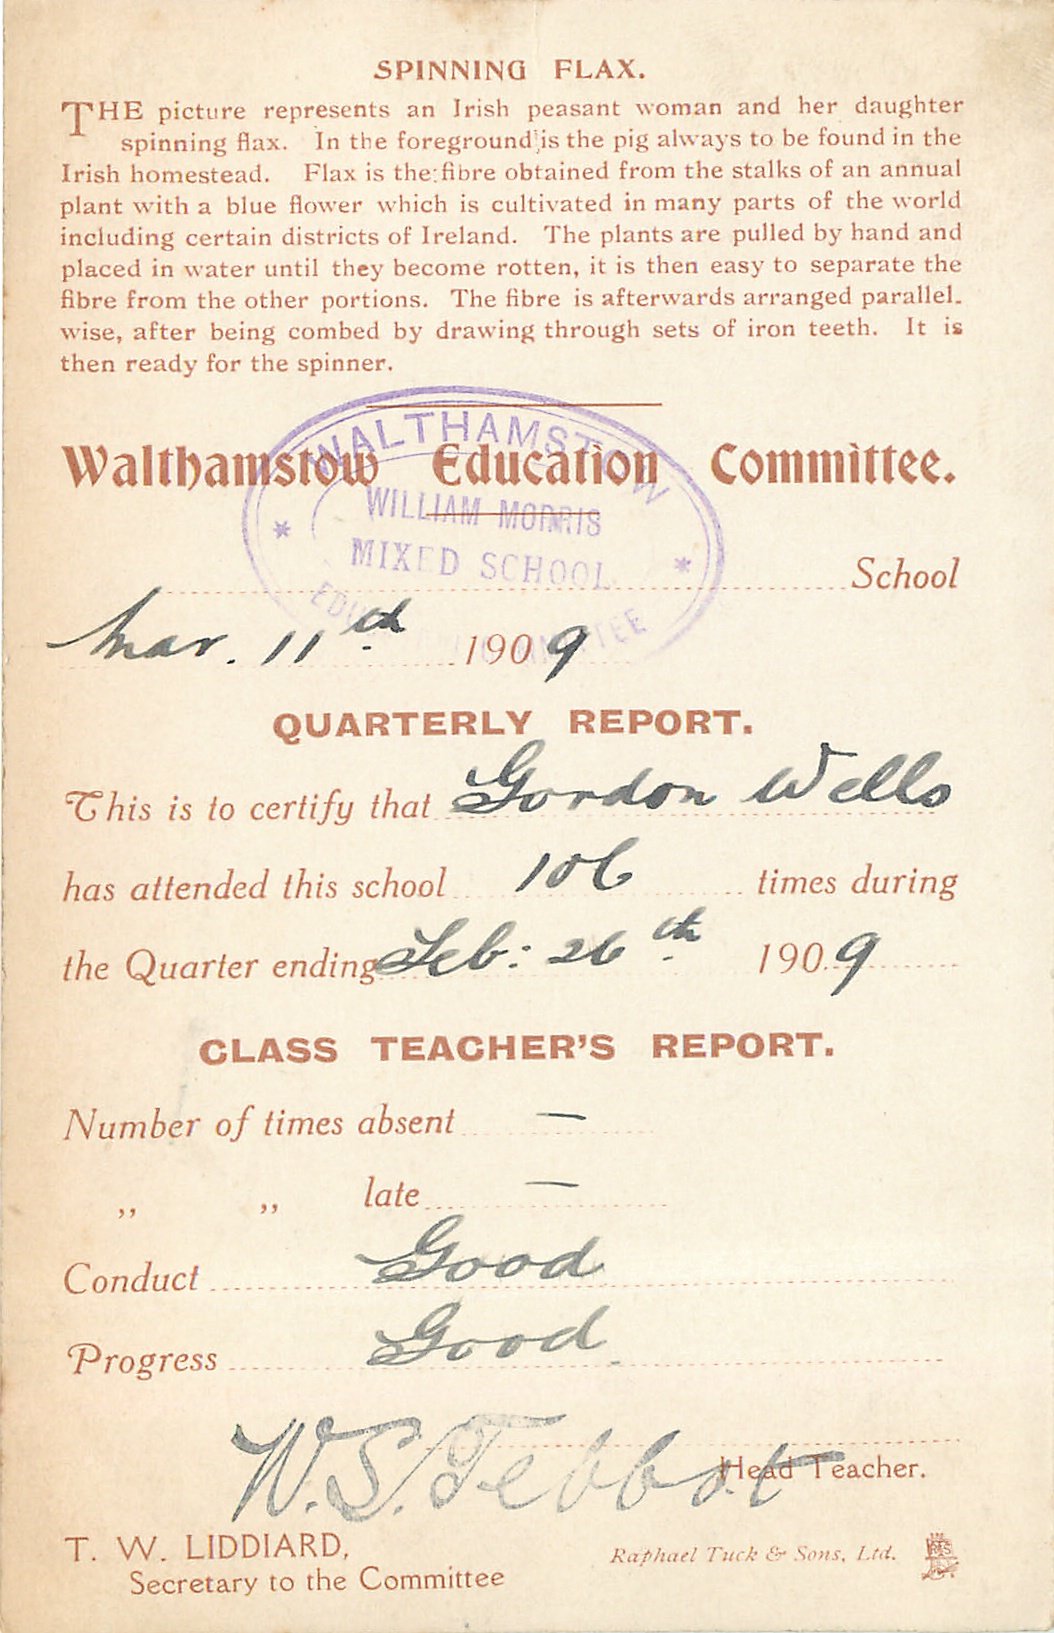 SPINNING FLAX.
THE picture represents an Irish peasant woman and her daughter
spinning flax. In the foreground is the pig always to be found in the
Irish homestead. Flax is the fibre obtained from the stalks of an annual
plant with a blue flower which is cultivated in many parts of the world
including certain districts of Ireland. The plants are pulled by hand and
placed in water until they become rotten, it is then easy to separate the
fibre from the other portions. The fibre is afterwards arranged parallel-
wise, after being combed by drawing through sets of iron teeth. It is
then ready for the spinner.
WALTHAMSTOW
Walthamstow Education Committee.
WILLIAM MORRIS
MIXED SCHOOL
School
EDUCATION COMMITTEE
Mar. 11th 1909
QUARTERLY REPORT.
This is to certify that Gordon Wells
has attended this school 106 times during
the Quarter ending Feb: 26th 1909
CLASS TEACHER'S REPORT.
Number of times absent —
„ „ late —
Conduct Good
Progress Good
W. S. Tebbot
Head Teacher.
T. W. LIDDIARD,
Secretary to the Committee
Raphael Tuck & Sons, Ltd.